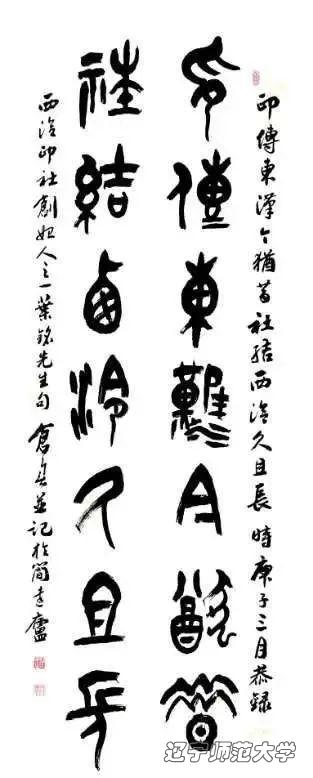 印傳東漢今猶昔社結西泠久且長時庚子三月恭録
印傳東漢今猶昔
社結西泠久且長
西泠印社創始人之一葉銘先生句並記於簡廬
辽宁师范大学